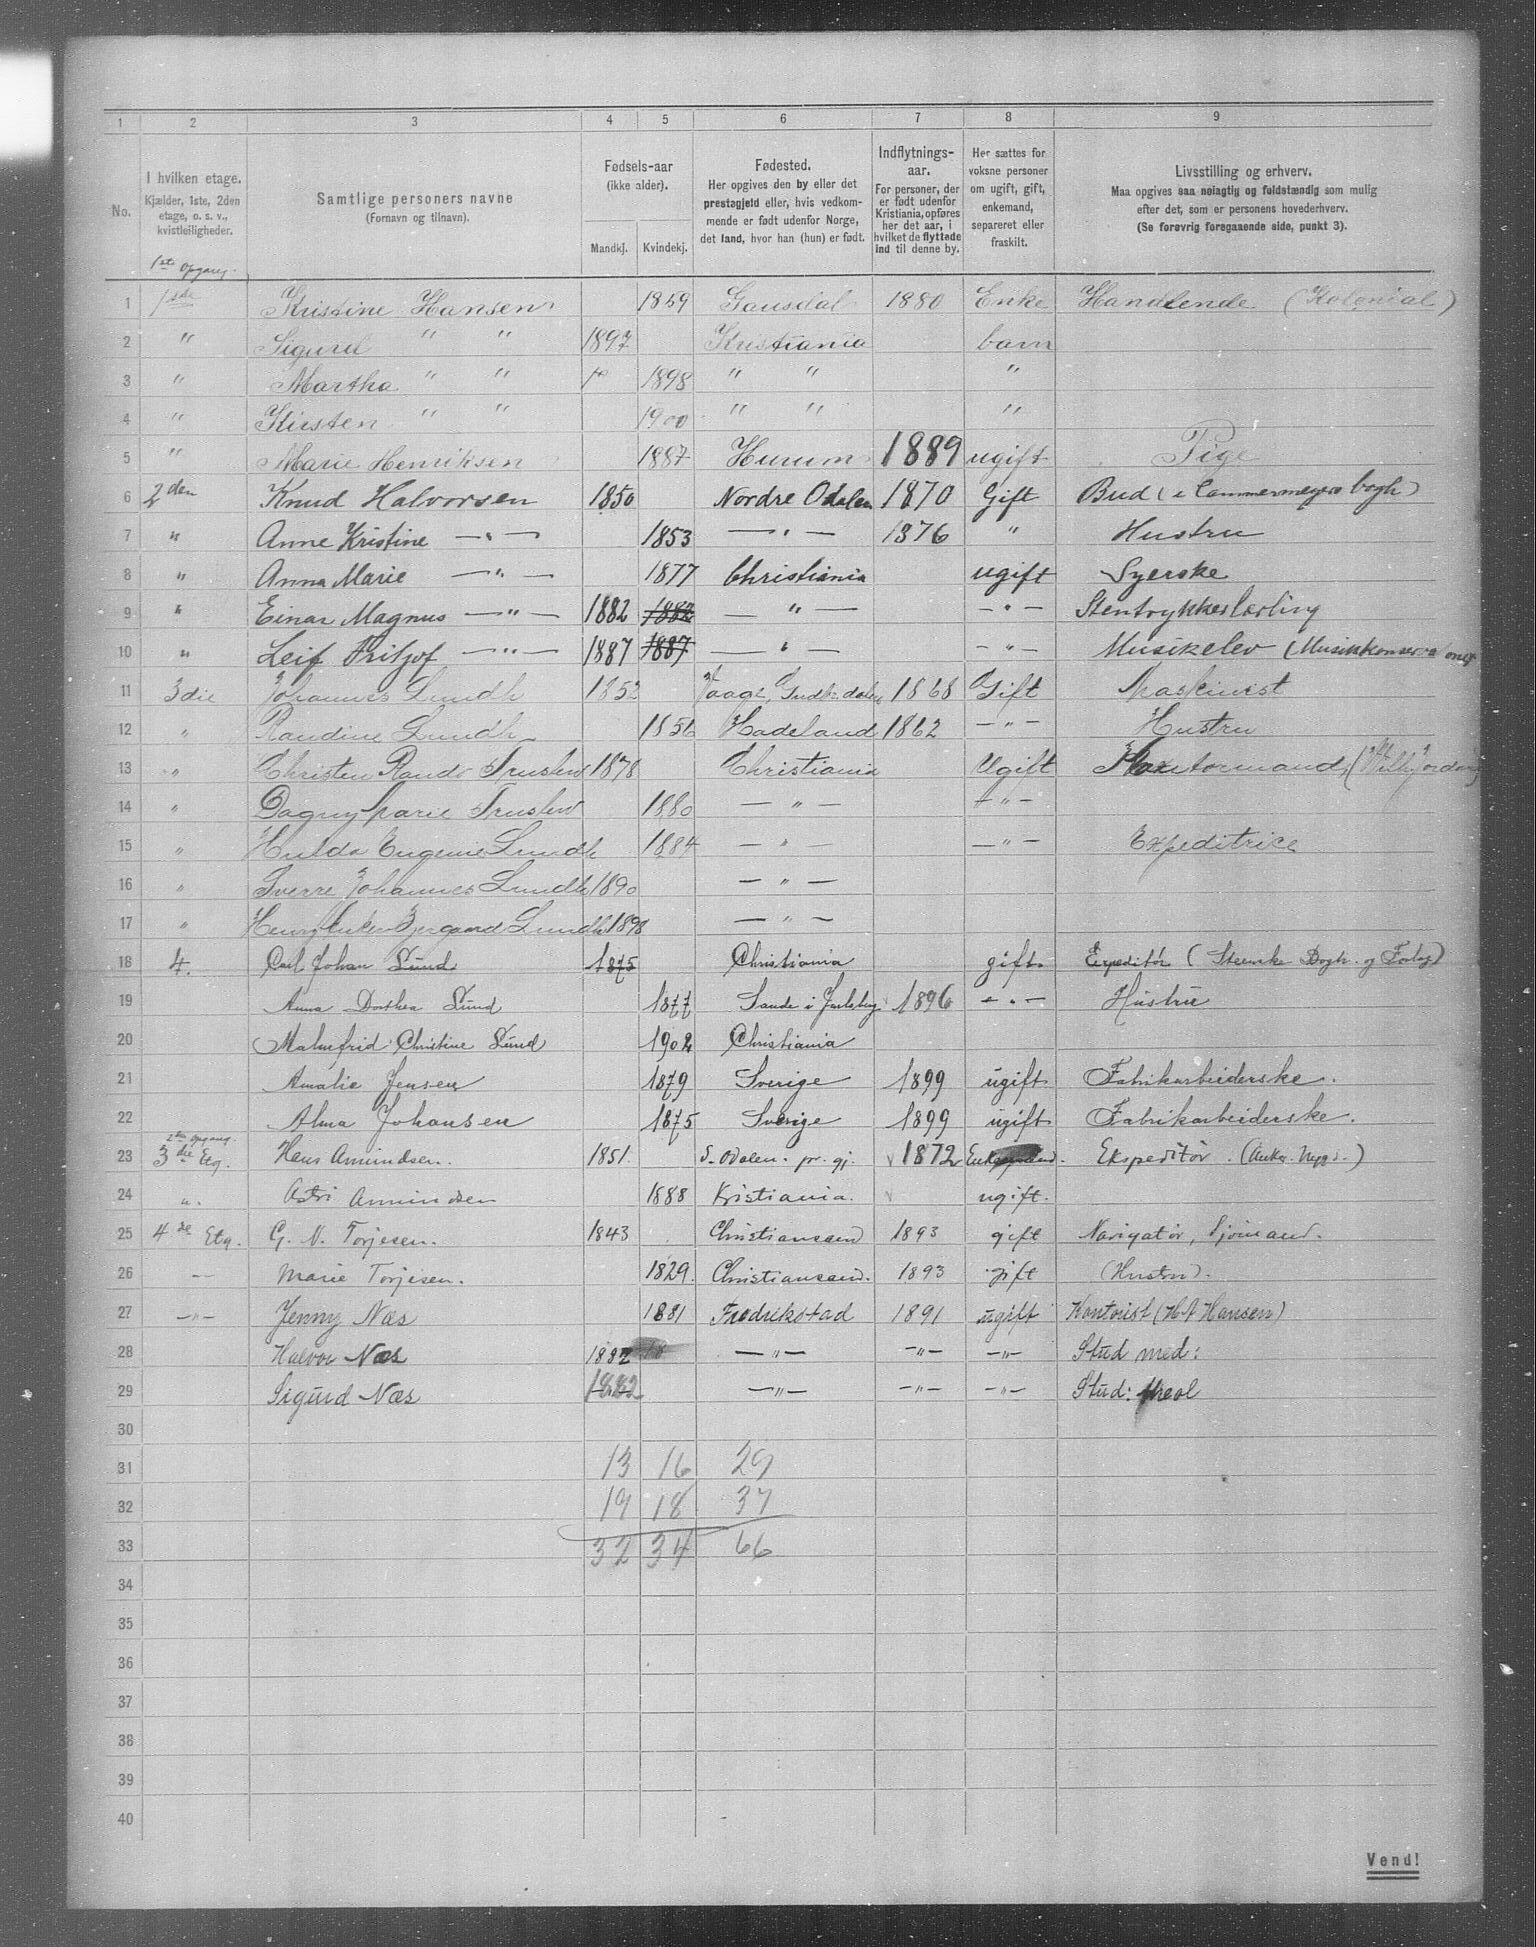 1 2 3 4 5 6 7 8 9
No.
I hvilken etage.
Kjælder, 1ste, 2den
etage, o. s. v.,
kvistleiligheder.
Samtlige personers navne
(Fornavn og tilnavn).
Fødsels-aar
(ikke alder).
Mandkj. Kvindekj.
Fødested.
Her opgives den by eller det
prestegjeld eller, hvis vedkom-
mende er født udenfor Norge,
det land, hvor han (hun) er født.
Indflytnings-
aar.
For personer, der
er født udenfor
Kristiania, opføres
her det aar, i
hvilket de flyttede
ind til denne by.
Her sættes for
voksne personer
om ugift, gift,
enkemand,
separeret eller
fraskilt.
Livsstilling og erhverv.
Maa opgives saa nøiagtig og fuldstændig som mulig
efter det, som er personens hovederhverv.
(Se forøvrig foregaaende side, punkt 3).
1ste Opgang.
1 1ste Kristine Hansen 1859 Gausdal 1880 Enke Handlende (Kolonial)
2 " Sigurd " " 1897 Kristiania barn
3 " Martha " " 1898 " " "
4 " Kirsten " " 1900 " " "
5 " Marie Henriksen 1887 Hurum 1889 ugift Pige
6 2den Knud Halvorsen 1850 Nordre Odalen 1870 Gift Bud (i Cammermeyers bogh)
7 " Anne Kristine —"— 1853 —"— 1876 " Hustru
8 " Anna Marie —"— 1877 Christiania ugift Syerske
9 " Einar Magnus —"— 1882 1882 —"— —"— Stentrykkerlærling
10 " Leif Fritjof —"— 1887 1887 —"— —"— Musikelev (Musikkonserva
11 3die Johannes Lundh 1852 Vaage, Gudbr.dalen 1868 Gift Maskinist
12 " Randine Lundh 1856 Hadeland 1862 —"— Hustru
13 " Christen Rando 1878 Christiania Ugift
14 " Dagny Marie 1880 —"— —"—
15 " Hulda Eugenie Lundh 1884 —"— —"— Expeditrice
16 " Sverre Johannes Lundh 1890 —"—
17 " Henry Lundh 1898 —"—
18 4. Carl Johan Lund 1875 Christiania gift Expeditør (Steenske Bogtr. og Forlag)
19 Anna Dorthea Lund 1877 Sande i Jarlsberg 1896 —"— Hustru
20 Malmfrid Christine Lund 1902 Christiania
21 Amalie Jensen 1879 Sverige 1899 ugift Fabrikarbeiderske.
22 Alma Johansen 1875 Sverige 1899 ugift Fabrikarbeiderske.
2den Opgang.
23 3die Etg. Hans Amundsen. 1851. S. Odalen. pr. gj. 1872 Enkemand. Ekspeditør.
24 " Astri Amundsen 1888 Kristiania. ugift.
25 4de Etg. G. N. Torjesen. 1843 Christiansand 1893 gift Navigatør, Sjømand.
26 — Marie Torjesen. 1829. Christiansand. 1893 gift (Hustru).
27 —"— Jenny Næs 1881 Fredrikstad 1891 ugift Kontorist (H A Hansen)
28 Halvor Næs 1882 18 —"— —"— —"— Stud med:
29 Sigurd Næs 1882 —"— —"— —"— Stud: theol
30
31 13 16 29
32 19 18 37
33 32 34 66
34
35
36
37
38
39
40
Vend!